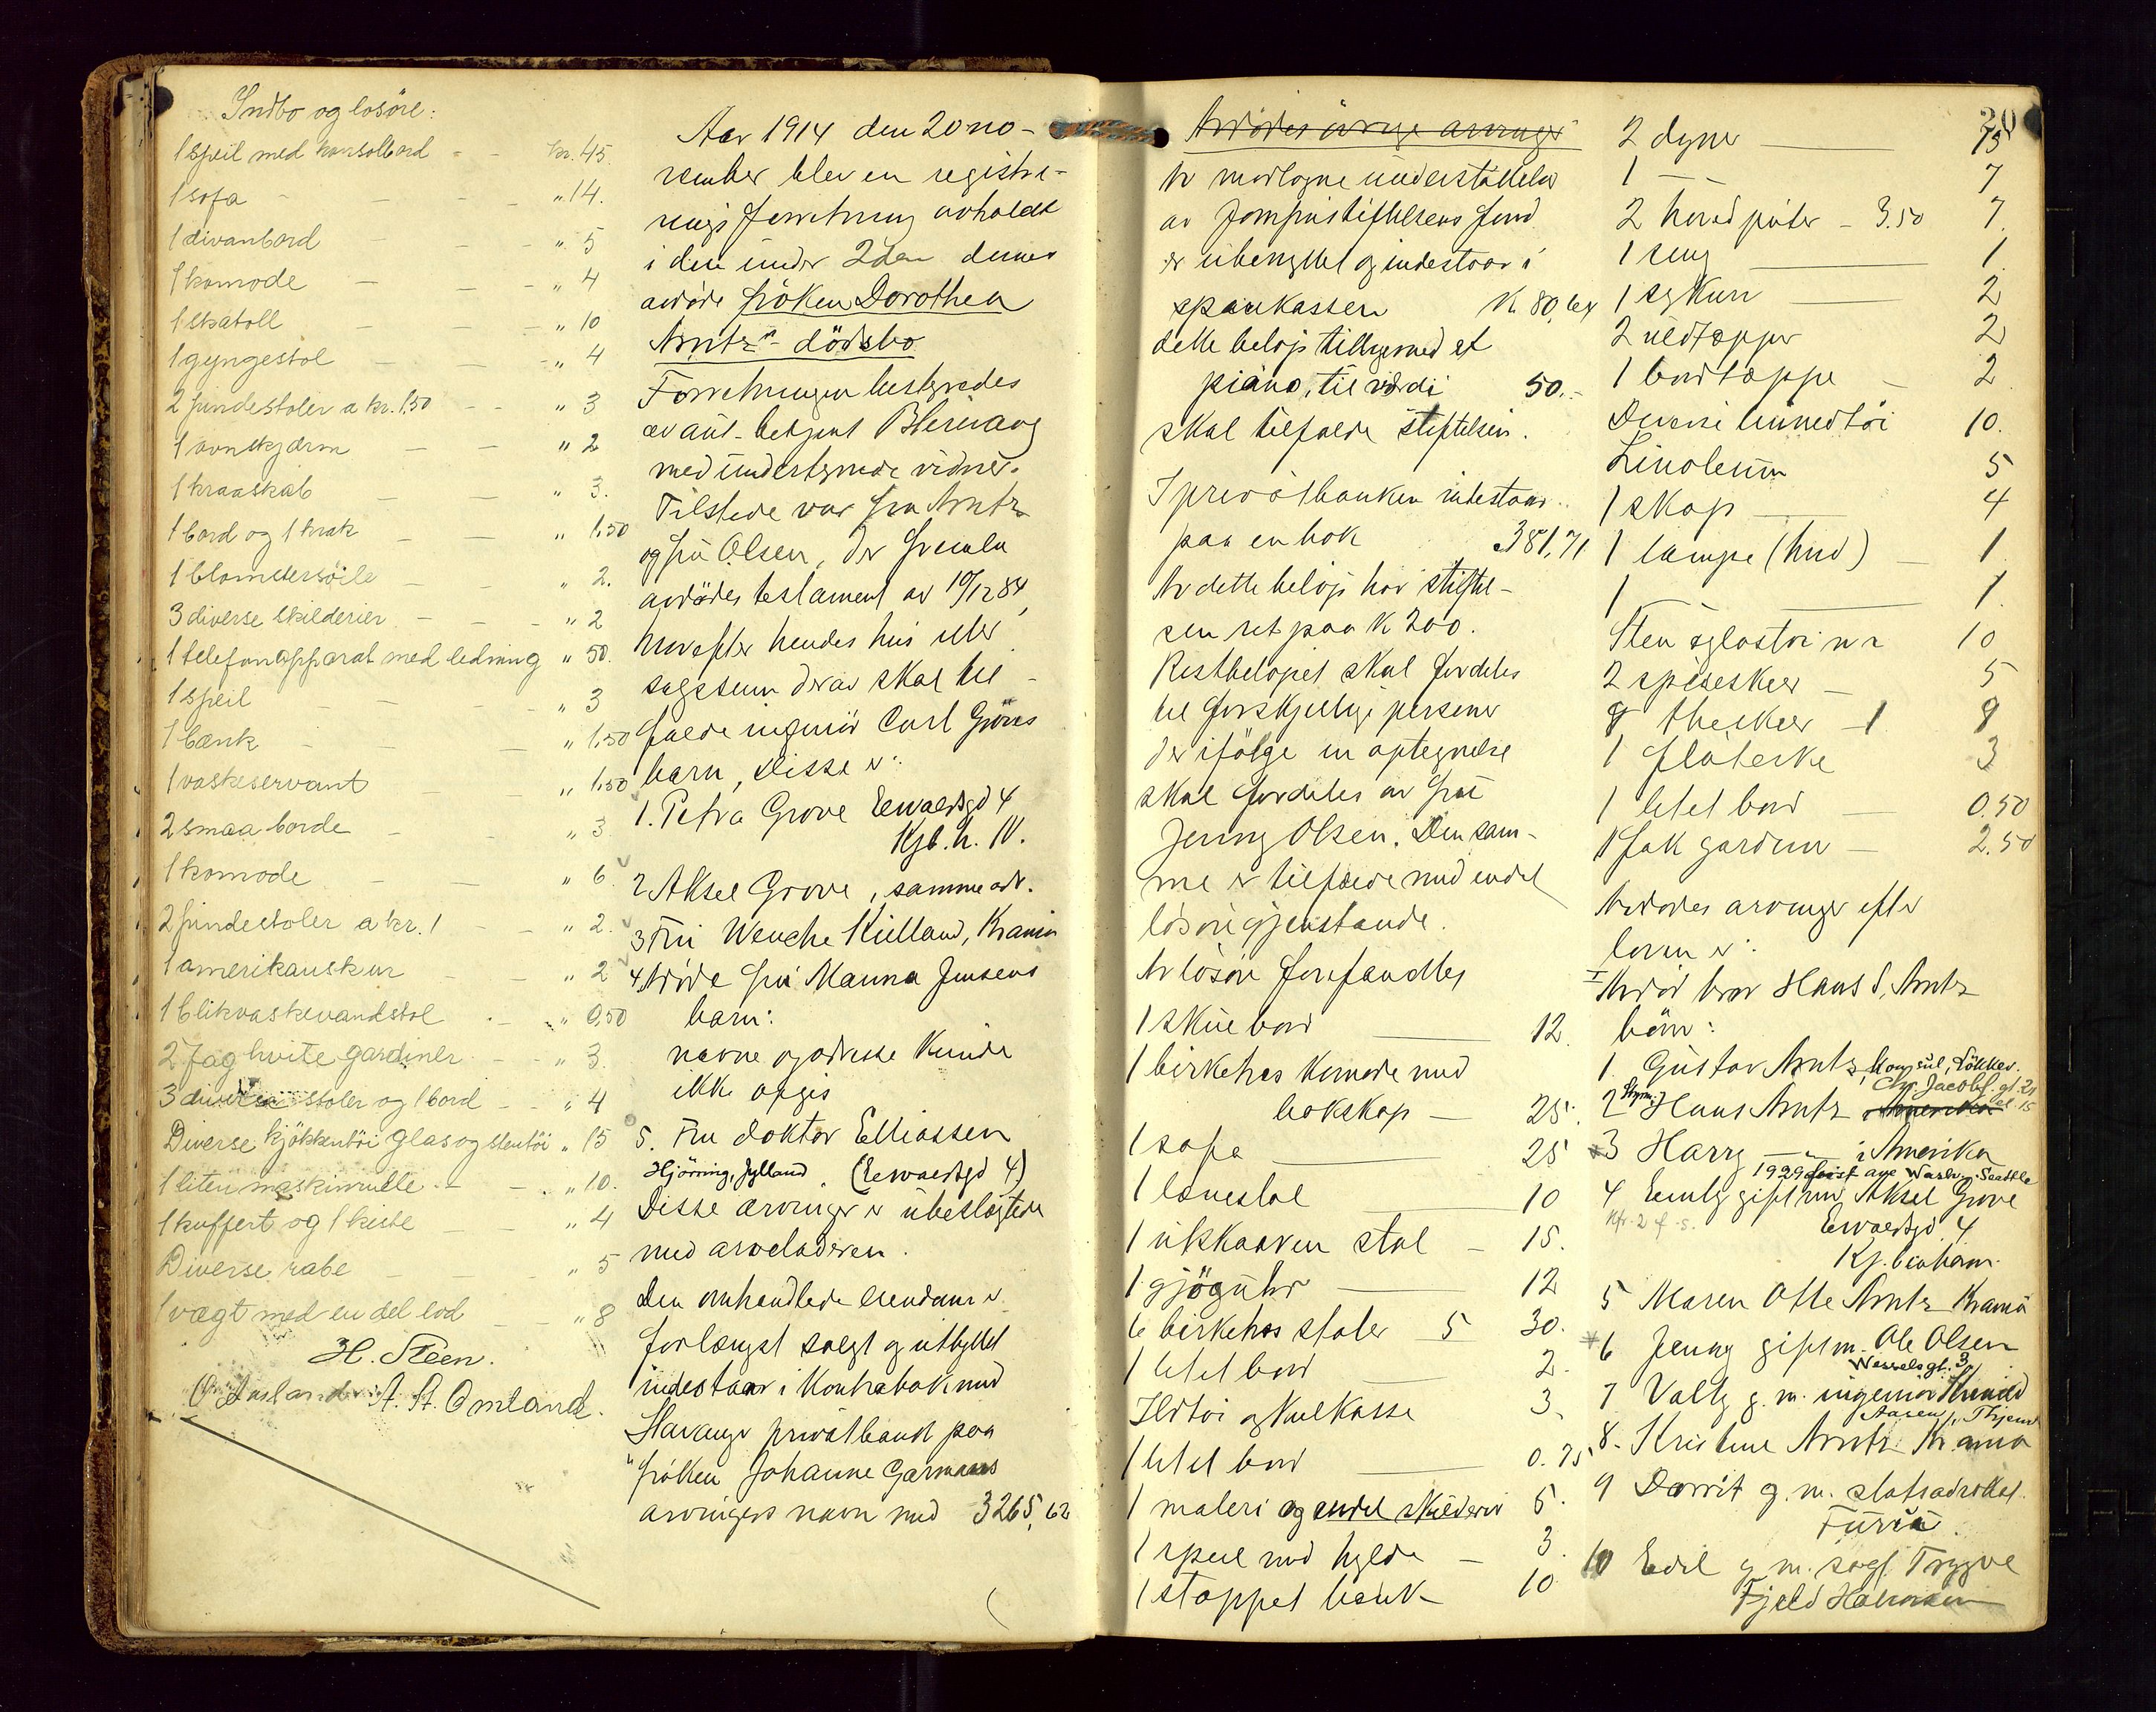 Indbo og løsöre:
1 speil med konsolbord - - kr. 45.
1 sofa - - - - " 14.
1 divanbord - - - " 5
1 komode - - - " 4
1 skatoll - - - " 10
1 gyngestol - - - " 4
2 pindestoler a kr. 1,50 - - " 3
1 ovnskjærm - - " 2
1 kraaskab - - " 3.
1 bord og 1 krak - - " 1,50
1 blomstersöile - - " 2.
3 diverse skilderier - - - " 2
1 telefonapparat med ledning " 50.
1 speil - - - " 3
1 bænk - - - " 1,50
1 vaskeservant - - " 1,50
2 smaa borde - - " 3
1 komode - - " 6
2 pindestoler a kr. 1 - - " 2.
1 amerikanskur - - " 2
1 blikvaskevandstol - - " 0,50
2 fag hvite gardiner - - " 3.
3 diverse stoler og 1 bord - - " 4
Diverse kjökkentöi glas og stentöi " 15
1 liten maskinrulle - - " 10.
1 kuffert og 1 kiste - - " 4
Diverse rabe - - - " 5
1 vægt med en del lod - - " 8
H. Steen.
O. Aasland A. A. Omland.
Aar 1914 den 20 no-
vember blev en registre-
rings forretning avholdt
i den under 2den dennes
avdöde fröken Dorothea
Arntz' dödsbo
Forretningen bestyredes
av aut. betjent
med undertegnede vidner.
Tilstede var fru Arntz
og fru Olsen, der fremla
avdödes testament av 10/12 84,
hvorefter hendes hus eller
salgssum derav skal til-
falde ingeniör Carl Gröves
barn, disse er:
1. Petra Grove Ewaldsgd 4
Kjb. h. N.
2 Aksel Grove, samme adr.
3 Fru Wenche Kielland, Kra.nia
4 Avdöde fru Manna Jensens
barn:
navne og adresse kunde
ikke opgis
5. Fru doktor Eliassen
Hjörring, Jylland. (Ewaldsgd 4)
Disse arvinger er ubeslægtede
med arveladeren.
Den omhandlede eiendom er
forlængst solgt og utbyttet
indestaar i kontrabok med
Stavanger privatbank paa
"fröken Johanne Garmans
arvingers navn med 3265,62
20
Avdödes övrige arvinger
Av modtagne understöttelse
av Jomfrustiftelsens fond
er ubenyttet og indestaar i
sparekassen K 80,64
dette belöp tillikemed et
piano, til værdi 50.-
skal tilfalde stiftelsen.
I privatbanken indestaar
paa en bok 381,71
Av dette belöp har stiftel-
sen ret paa K 200.
Restbelöpet skal fordeles
til forskjellige personer
der ifölge en optegnelse
skal fordeles av fru
Jenny Olsen. Den sam-
me er tilfaldt med endel
lösöregjenstande.
Av lösöre forefandtes
1 skrivebord 12.
1 birketræs komode med
bokskap - 25.
1 sofa 25
1 lænestol 10
1 utskaaren stol - 15.
1 gjögeuhr 12
6 birketræs stoler 5 30.
1 litet bord 2.
Ildtöi og kulkasse 3.
1 litet bord 0.75
1 maleri og endel skilderier 5.
1 speil med hylde - 3.
1 stoppet bænk - 10.
2 dyner 15
1 - - 7
2 hovedputer - 3.50 7.
1 seng 1.
1 sykurv 2
2 uldtæpper 2
1 bordtæppe - 2.
Diverse linnedtöi 10.
Linoleum 5
1 skap 4
1 lampe (hvid) - 1.
1 - 1.
Sten glastöi m. m. 10
2 spiseskeer - 5
8 theskeer - 1 8
1 flöteske 3
1 litet bord - 0.50
1 fak gardiner - 2.50
Avdödes arvinger efter
loven er:
I Avdöd bror Hans S. Arntz
börn:
1 Gustav Arntz, konsul, Lökkev.
2 Hans Arntz Amerika Chr. Jacobs. gt. 21
3 Harry - " - i Amerika
1929 first ave Washing. Seattle
4 Emely gift m. Aksel Grove
Ewaldsgd. 4
Kjöbenhavn.
5 Maren Otte Arntz Kra.nia
6 Jenny gift m. Ole Olsen
Wesselsgt. 3
7 Vally g. m. ingeniör
Aasen, Thjem
8. Kristine Arntz Kr.ania
9 Dorrit g. m. statsadvokat
Furu
10 Edel g. m. sagf. Trygve
Fjeld Halvorsen